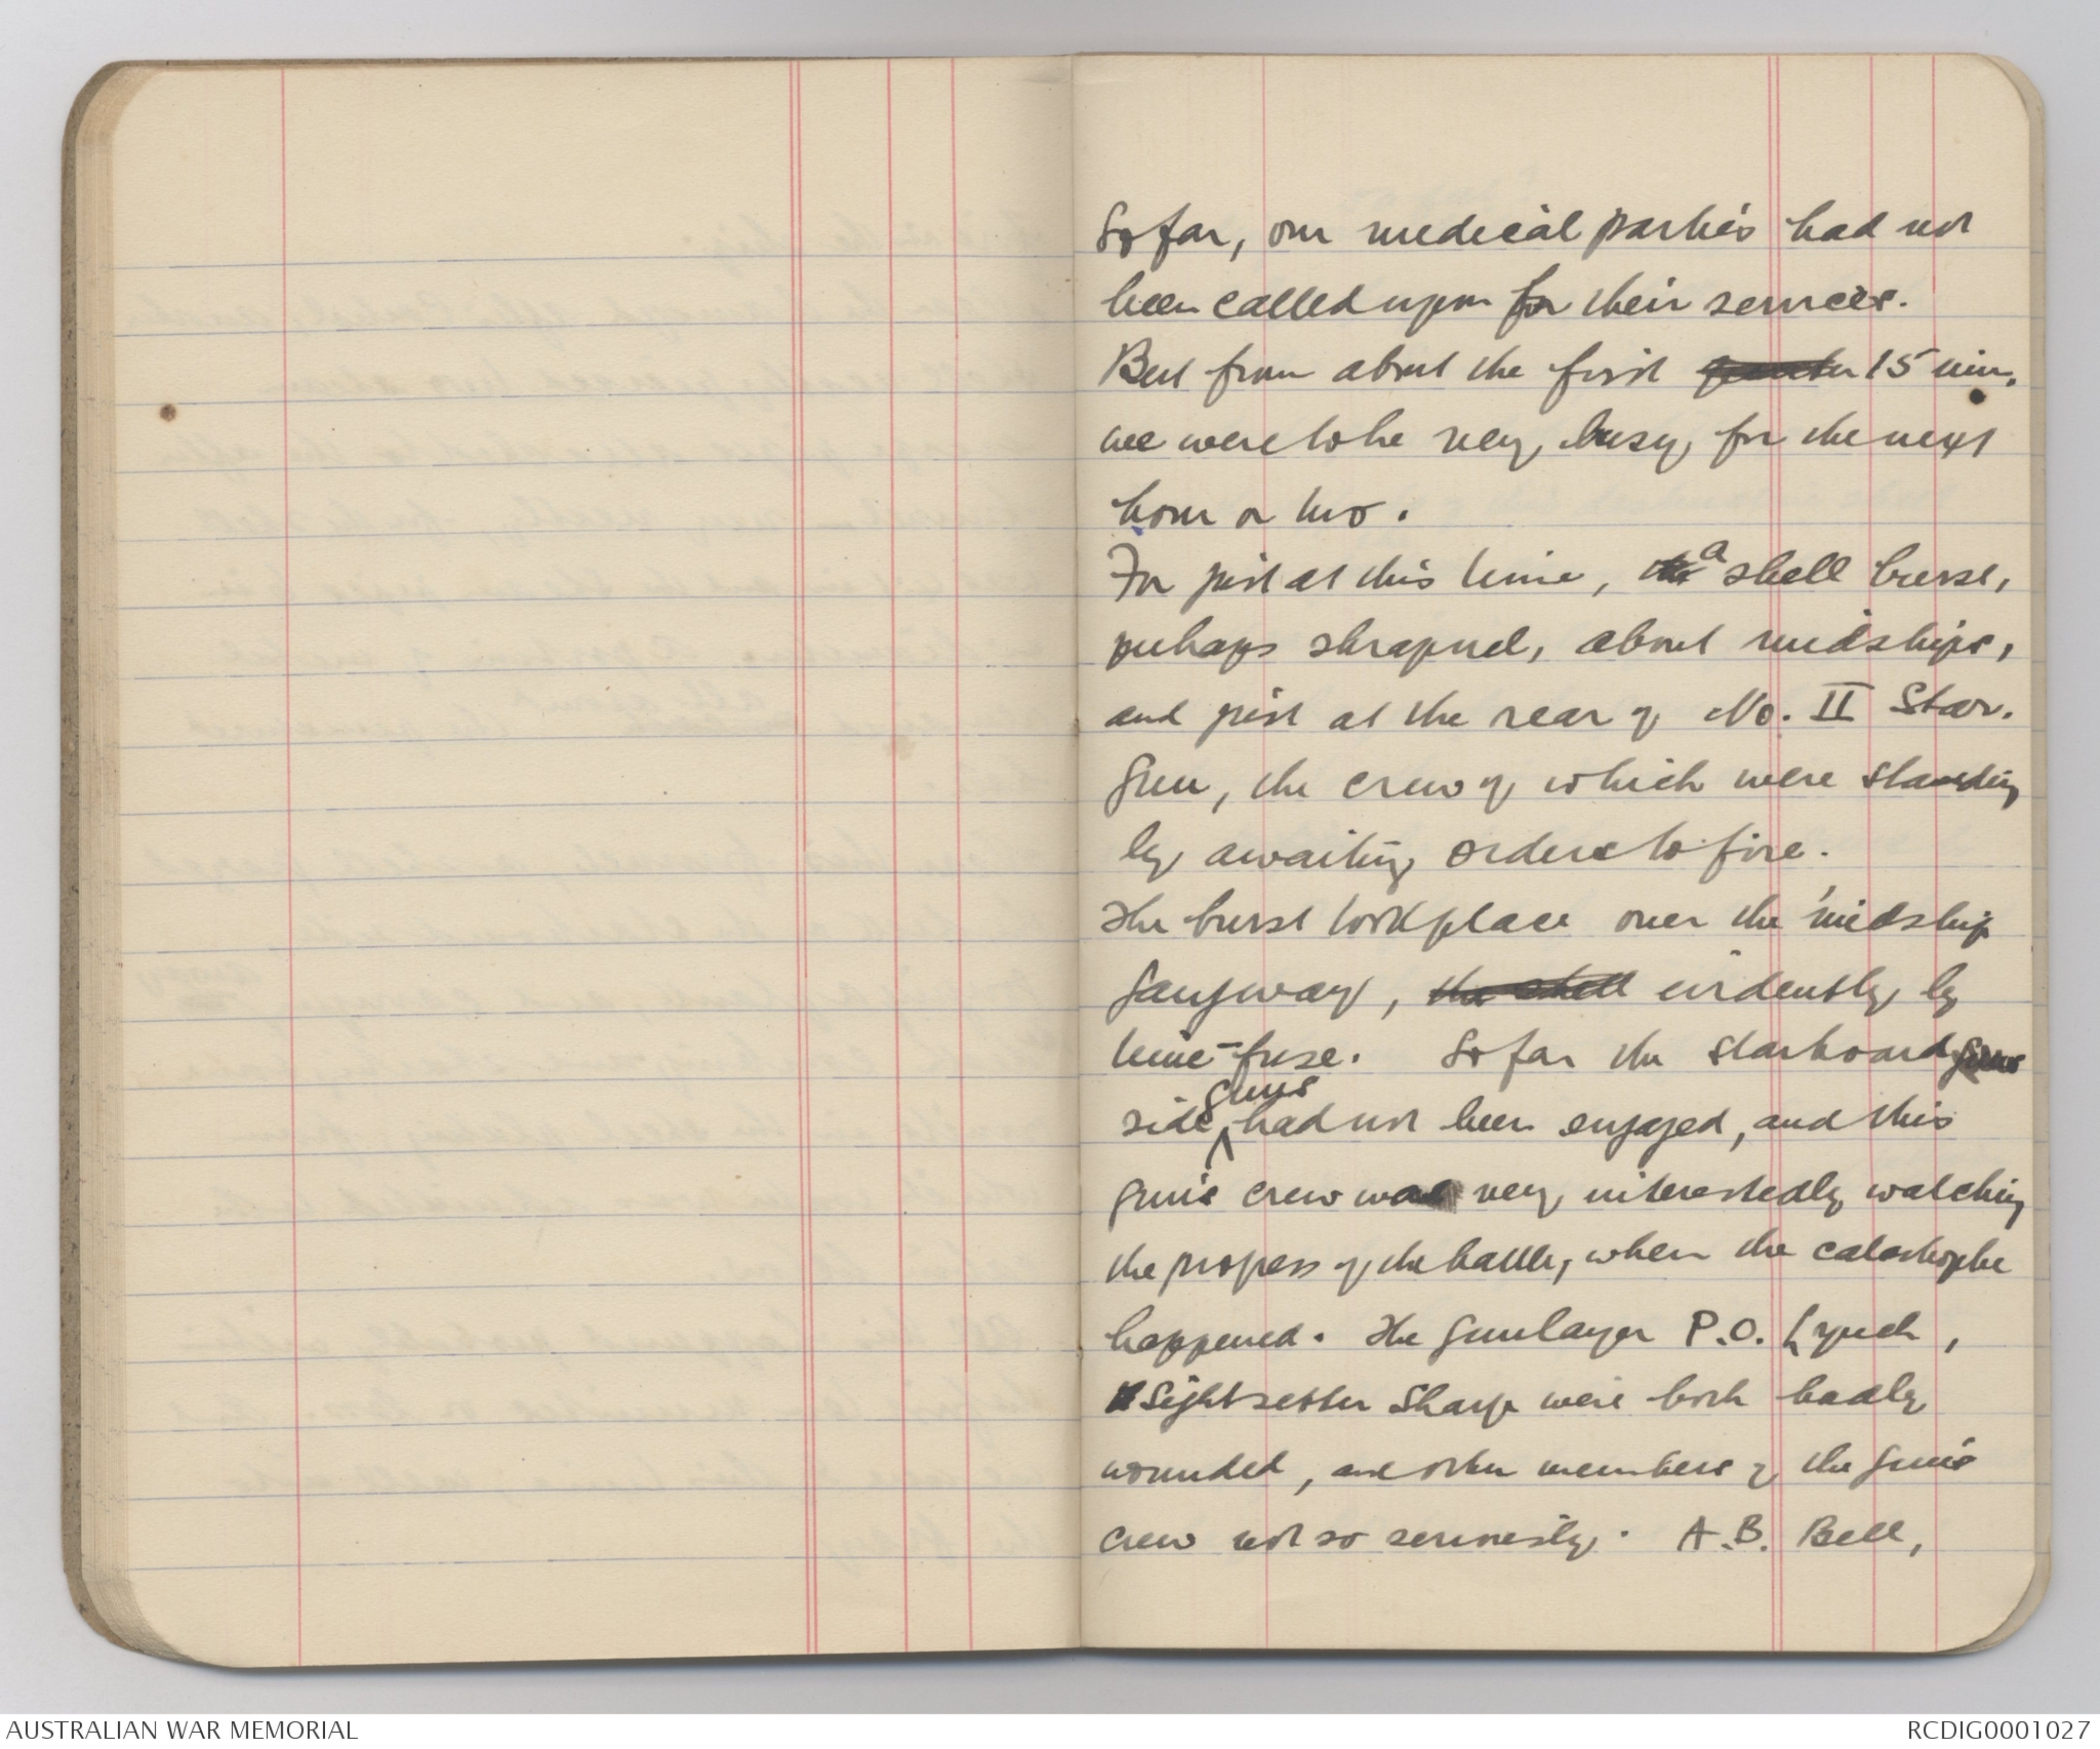 So far, our medical parties had not
been called upon for their services.
But from about the first quarter 15 min.
we were to be very busy, for the next
hour or two.
For just at this time, the a shell burst,
perhaps shrapnel, about midships,
and just at the rear of No. II Star.
Gun, the crew of which were standing
by awaiting orders to fire.
The burst took place over the 'midship
gangway, the shell evidently by
time-fuse. So far the starboard guns
side guns had not been engaged, and this
gun's crew was very interestedly watching
the progress of the battle, when the catastrophe
happened. The Gunlayer P.O. Lynch,
Sightsetter Sharpe were both badly
wounded, and other members of the gun's
crew not so seriously. A.B. Bell,
AUSTRALIAN WAR MEMORIAL
RCDIG0001027